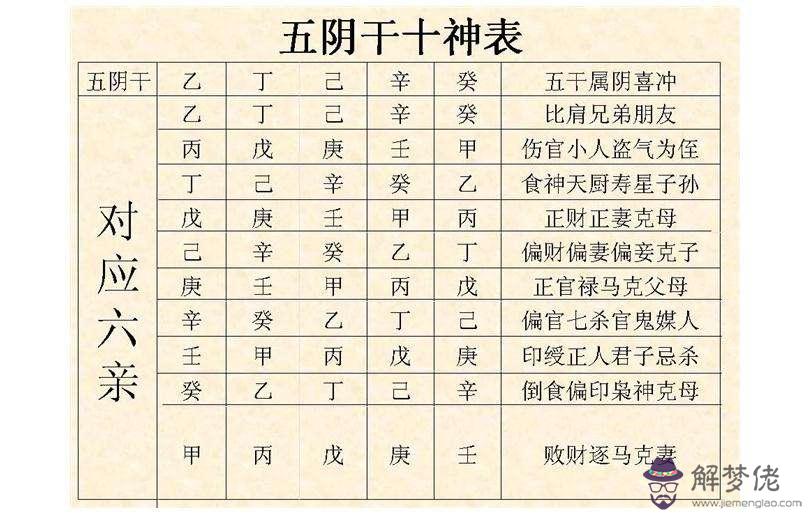 五阴干十神表
五阴干 乙 丁 己 辛 癸 五干属阴喜冲
对应六亲
乙 丁 己 辛 癸 比肩兄弟朋友
丙 戊 庚 壬 甲 伤官小人盗气为侄
丁 己 辛 癸 乙 食神天厨寿星子孙
戊 庚 壬 甲 丙 正财正妻克母
己 辛 癸 乙 丁 偏财偏妻偏妾克子
庚 壬 甲 丙 戊 正官禄马克父母
辛 癸 乙 丁 己 偏官七杀官鬼媒人
壬 甲 丙 戊 庚 印绶正人君子忌杀
癸 乙 丁 己 辛 倒食偏印枭神克母
甲 丙 戊 庚 壬 败财逐马克妻
解梦佬
www.jiemenglao.com